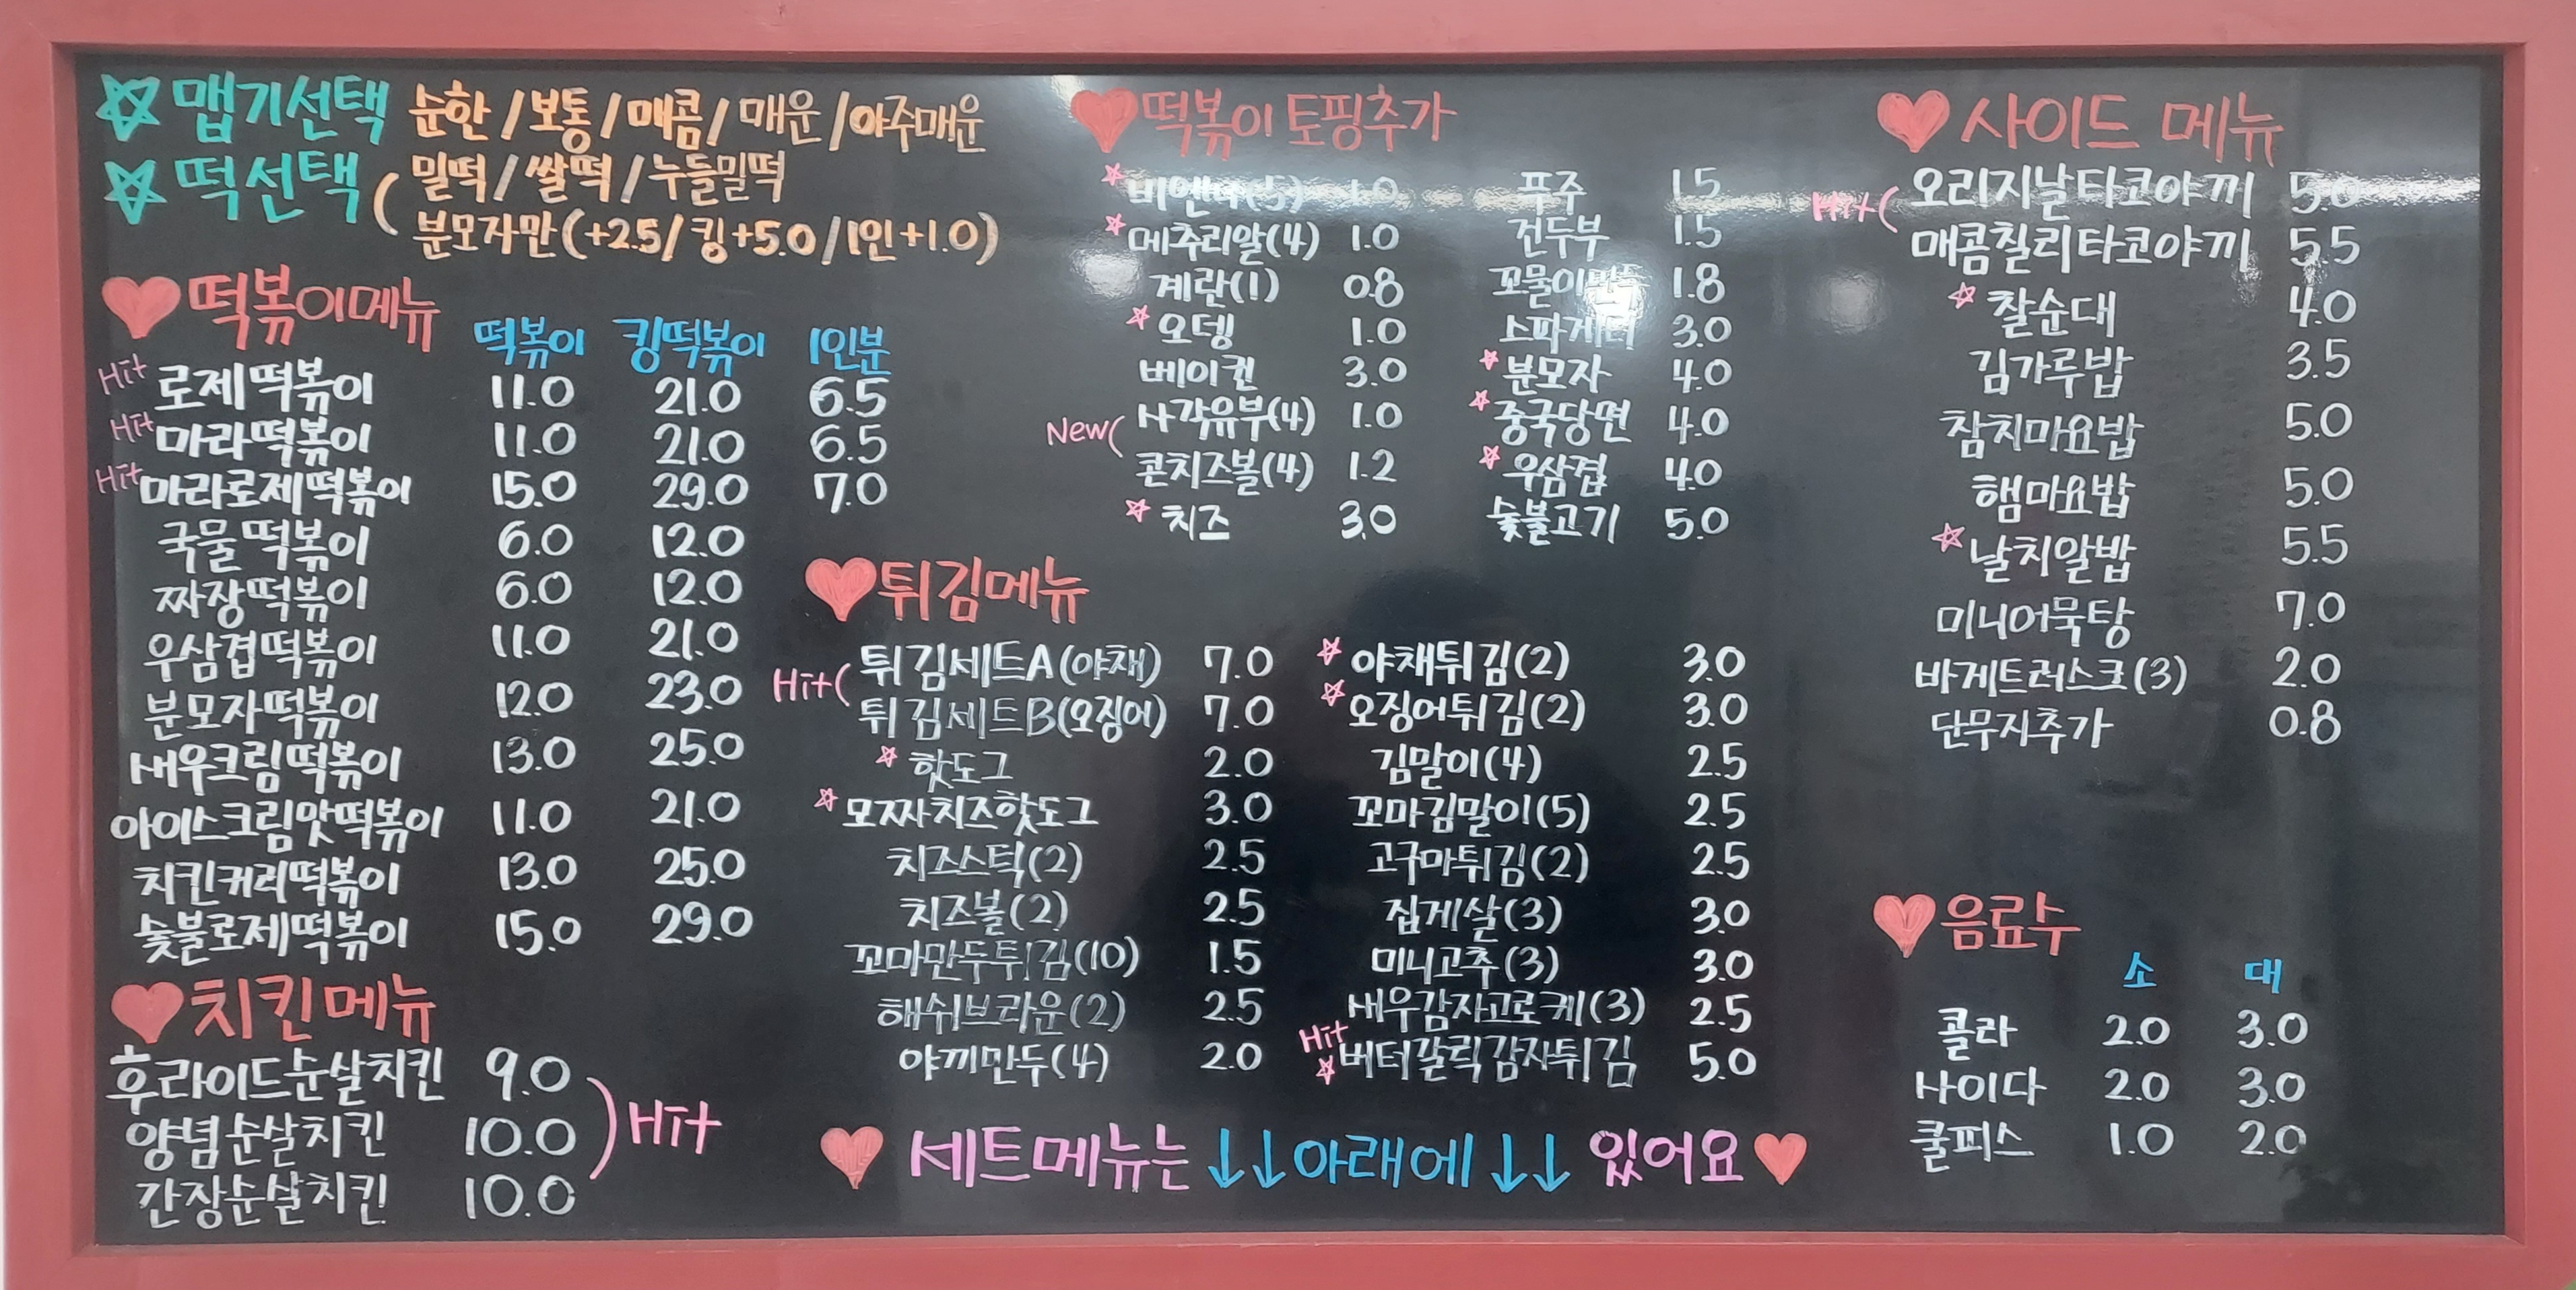 맵기선택 순한/보통/매콤/매운/아주매운
떡선택 ( 밀떡/쌀떡/누들밀떡
분모자만(+2.5/킹+5.0/1인+1.0)
떡볶이메뉴
떡볶이 킹떡볶이 1인분
Hit 로제떡볶이 11.0 21.0 6.5
Hit 마라떡볶이 11.0 21.0 6.5
Hit 마라로제떡볶이 15.0 29.0 7.0
국물떡볶이 6.0 12.0
짜장떡볶이 6.0 12.0
우삼겹떡볶이 11.0 21.0
분모자떡볶이 12.0 23.0
새우크림떡볶이 13.0 25.0
아이스크림맛떡볶이 11.0 21.0
치킨커리떡볶이 13.0 25.0
숯불로제떡볶이 15.0 29.0
치킨메뉴
후라이드순살치킨 9.0
양념순살치킨 10.0 ) Hit
간장순살치킨 10.0
떡볶이 토핑추가
비엔나(5) 1.0
메추리알(4) 1.0
계란(1) 0.8
오뎅 1.0
베이컨 3.0
New( 사각유부(4) 1.0
콘치즈볼(4) 1.2
치즈 3.0
푸주 1.5
건두부 1.5
꼬물이만두 1.8
스파게티 3.0
분모자 4.0
중국당면 4.0
우삼겹 4.0
숯불고기 5.0
튀김메뉴
Hit( 튀김세트A(야채) 7.0
튀김세트B(오징어) 7.0
핫도그 2.0
모짜치즈핫도그 3.0
치즈스틱(2) 2.5
치즈볼(2) 2.5
꼬마만두튀김(10) 1.5
해쉬브라운(2) 2.5
야끼만두(4) 2.0
야채튀김(2) 3.0
오징어튀김(2) 3.0
김말이(4) 2.5
꼬마김말이(5) 2.5
고구마튀김(2) 2.5
집게살(3) 3.0
미니고추(3) 3.0
새우감자고로케(3) 2.5
Hit 버터갈릭감자튀김 5.0
세트메뉴는 ↓↓아래에↓↓ 있어요
사이드 메뉴
Hit( 오리지날타코야끼 5.0
매콤칠리타코야끼 5.5
찰순대 4.0
김가루밥 3.5
참치마요밥 5.0
햄마요밥 5.0
날치알밥 5.5
미니어묵탕 7.0
바게트러스크(3) 2.0
단무지추가 0.8
음료수
소 대
콜라 2.0 3.0
사이다 2.0 3.0
쿨피스 1.0 2.0